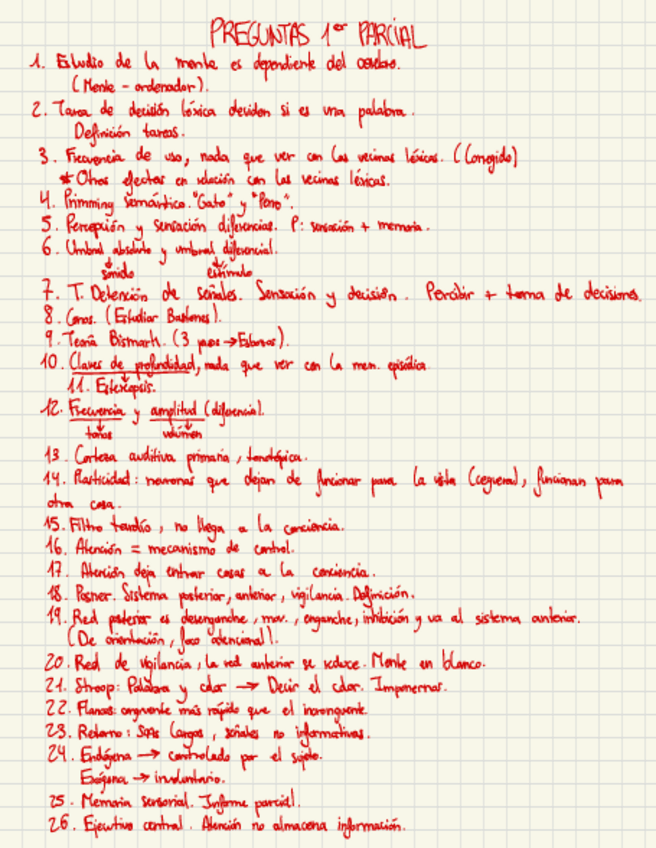 PREGUNTAS 1er PARCIAL
1. Estudio de la mente es dependiente del cerebro.
(Mente - ordenador).
2. Tarea de decisión léxica deciden si es una palabra.
Definición tareas.
3. Frecuencia de uso, nada que ver con las vecinas léxicas. (Corregido)
* Otros efectos en relación con las vecinas léxicas.
4. Primming semántico. "Gato" y "Perro".
5. Percepción y sensación diferencias. P: sensación + memoria.
6. Umbral absoluto y umbral diferencial.
↓ sonido ↓ estímulo
7. T. Detención de señales. Sensación y decisión. Percibir + toma de decisiones.
8. Conos. (Estudiar Bastones).
9. Teoría Bismark. (3 → Esbozos).
10. Claves de profundidad, nada que ver con la mem. episódica
11. Estereopsis.
12. Frecuencia y amplitud (diferencia).
↓ tonos ↓ volúmen
13. Corteza auditiva primaria, tonotópica.
14. Plasticidad: neuronas que dejan de funcionar para la vista (ceguera), funcionan para
otra cosa.
15. Filtro tardío, no llega a la conciencia.
16. Atención = mecanismo de control.
17. Atención deja entrar cosas a la conciencia.
18. Posner. Sistema posterior, anterior, vigilancia. Definición.
19. Red posterior es desenganche, mov., enganche, inhibición y va al sistema anterior.
(De orientación, foco atencional).
20. Red de vigilancia, la red anterior se reduce. Mente en blanco.
21. Stroop: Palabra y color → Decir el color.
22. Flancos: congruente más rápido que el incongruente.
23. Retorno: SOAs largos, señales no informativas.
24. Endógena → controlado por el sujeto.
Exógena → involuntario.
25. Memoria sensorial. Informe parcial.
26. Ejecutivo central. Atención no almacena información.